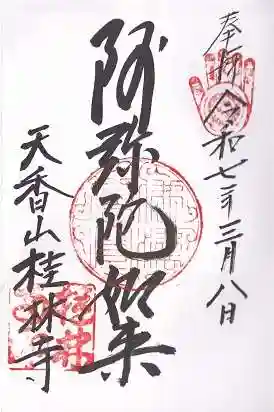 奉拝 令和七年三月八日
阿弥陀如来
天香山桂林寺